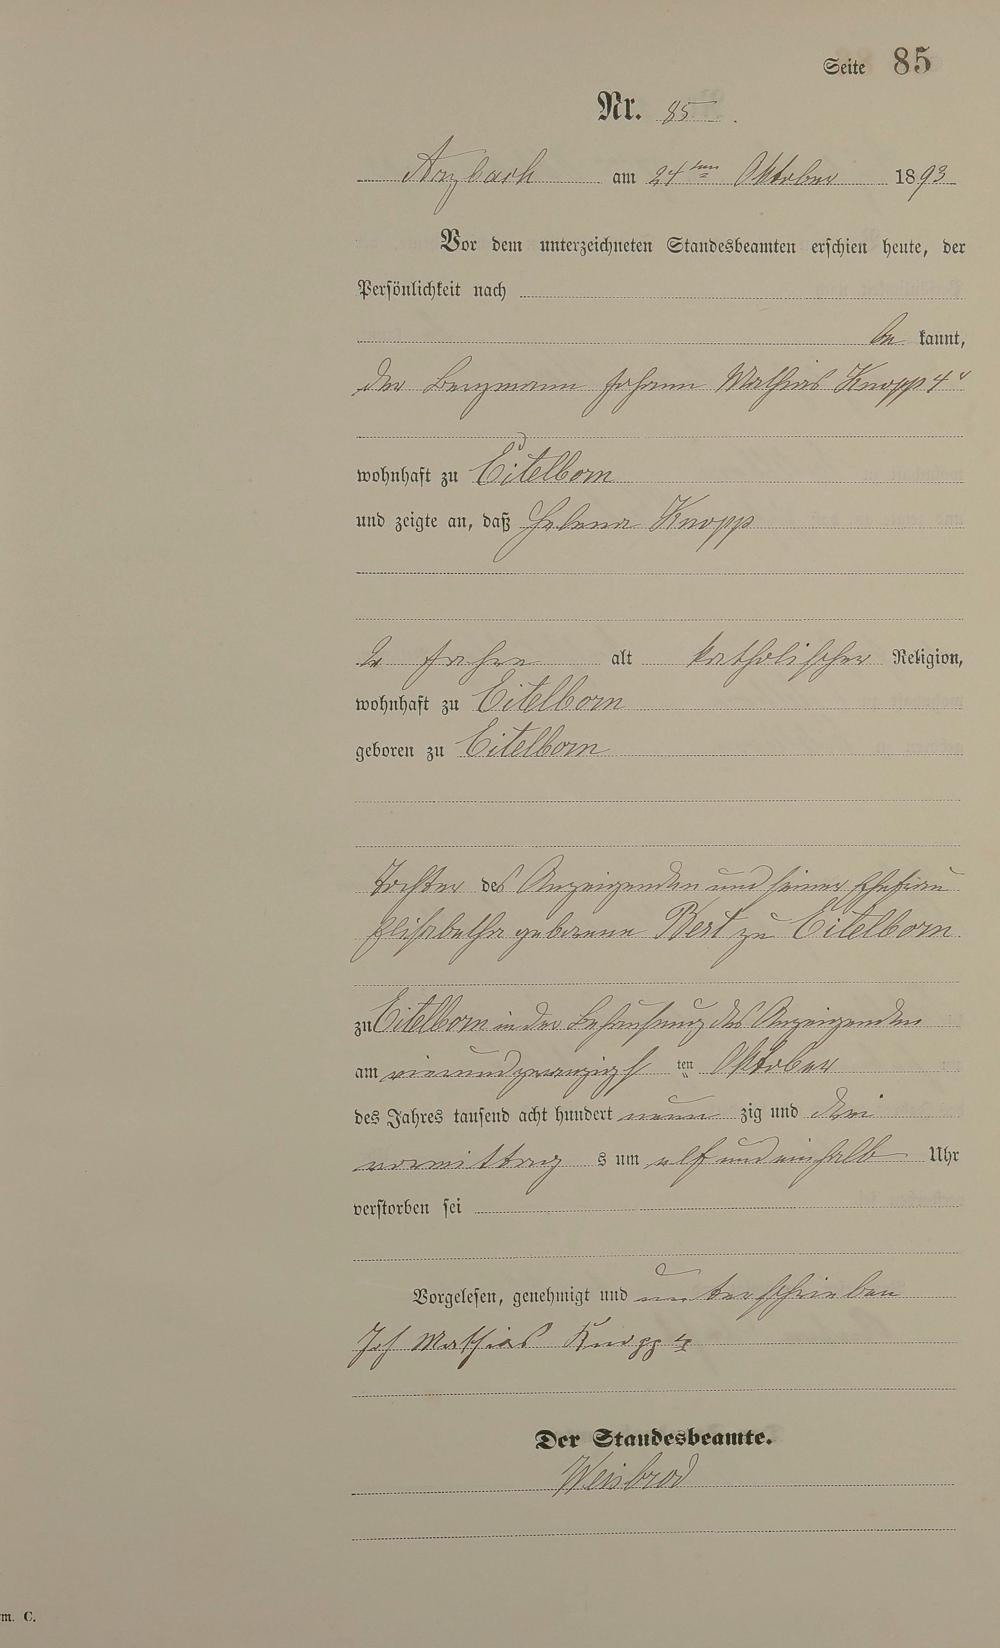 Seite 85
Nr. 85.
Arzbach am 24ten Oktober 1893
Vor dem unterzeichneten Standesbeamten erschien heute, der
Persönlichkeit nach
be kannt,
der Bergmann Johann Mathias Knopp 4r
wohnhaft zu Eitelborn
und zeigte an, daß Helena Knopp
2 Jahre alt katholischer Religion,
wohnhaft zu Eitelborn
geboren zu Eitelborn
Tochter des Anzeigenden und seiner Ehefrau
Elisabetha geborene Best zu Eitelborn
zu Eitelborn in der Behausung des Anzeigenden
am vierundzwanzigsten Oktober
des Jahres tausend acht hundert neun zig und drei
vormittag s um elf und einhalb Uhr
verstorben sei
Vorgelesen, genehmigt und unterschrieben
Joh Mathias Knopp 4
Der Standesbeamte.
Weisbrod
m. C.